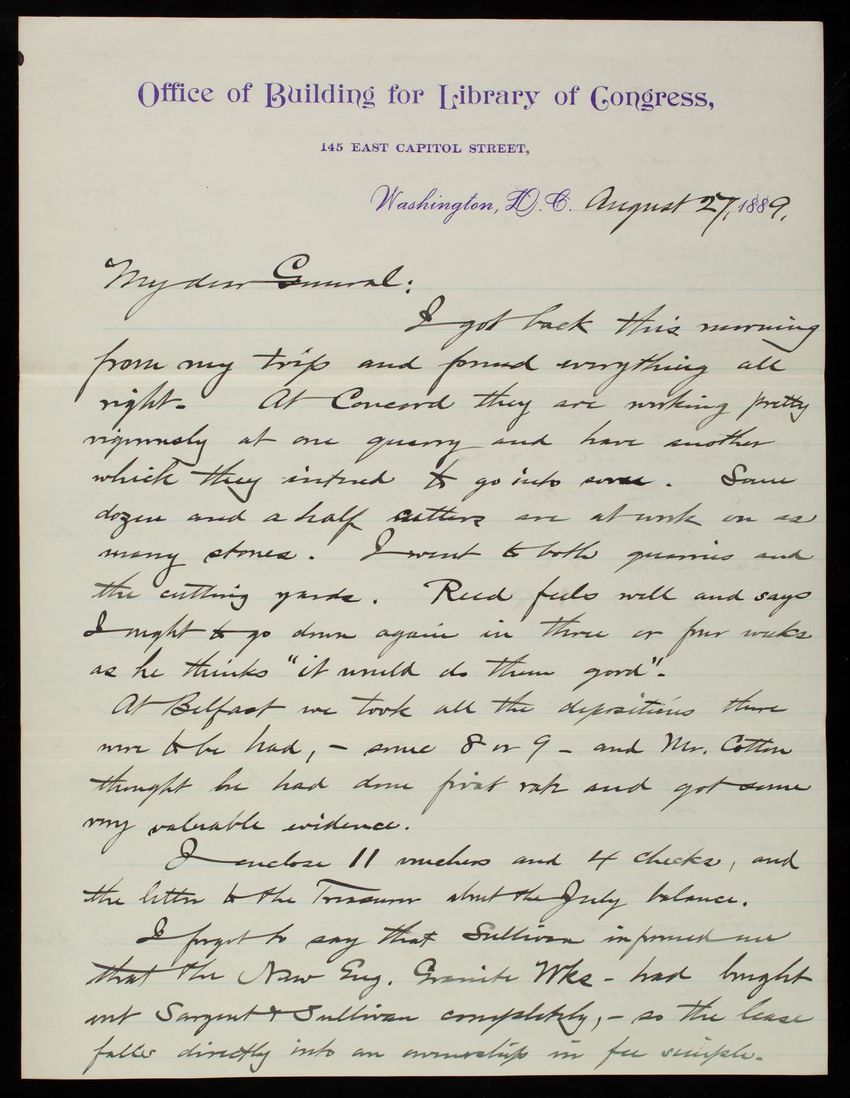 Office of Building for Library of Congress,
145 EAST CAPITOL STREET,
Washington, D. C. August 27, 1889.
My dear General:
I got back this morning
from my trip and found everything all
right. At Concord they are working pretty
vigorously at one quarry and have another
which they intend to go into soon. Some
dozen and a half cutters are at work on as
many stones. I went to both quarries and
the cutting yards. Reed feels well and says
I ought to go down again in three or four weeks
as he thinks "it would do them good".
At Belfast we took all the depositions there
were to be had, - some 8 or 9 - and Mr. Cotton
thought he had done first rate and got some
very valuable evidence.
I enclose 11 vouchers and 4 checks, and
the letter to the Treasurer about the July balance.
I forgot to say that Sullivan informed me
that the New Eng. Granite Wks - had bought
out Sargent & Sullivan completely, - so the lease
falls directly into an ownership in fee simple.